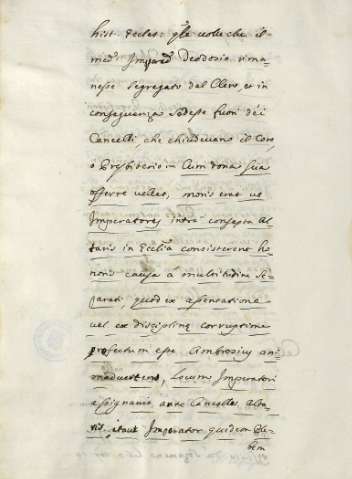 hist: Eccles: q̃le volle che il
med.º Imperad.ͬ Teodosio rima-
nesse segregato dal Clero, et in
conseguenza sedesse fuori dei
Cancelli, che chiudevano il Coro,
ò Presbiterio = Cum dona sua
offerre vellet, moris erat ut
Imperatores intra consepta Al-
taris in Ecclia consisterent ho-
noris causa à multitudine se-
parati, quod ex assentatione
vel ex disciplinę corruptione
profectum esse Ambrosius ani-
madvertens, Locum Imperatori
assignavit ante Cancellos Alta-
ris, itaut Imperator quidem Ple-
bem